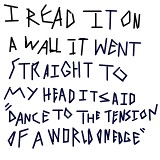 I READ IT ON
A WALL IT WENT
STRAIGHT TO
MY HEAD IT SAID
"DANCE TO THE TENSION
OF A WORLD ON EDGE"